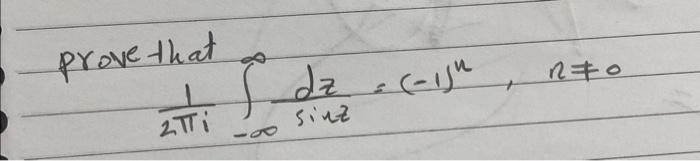 prove that
1/2πi ∫_{-∞}^{∞} dz/sinz = (-1)^n , n ≠ 0